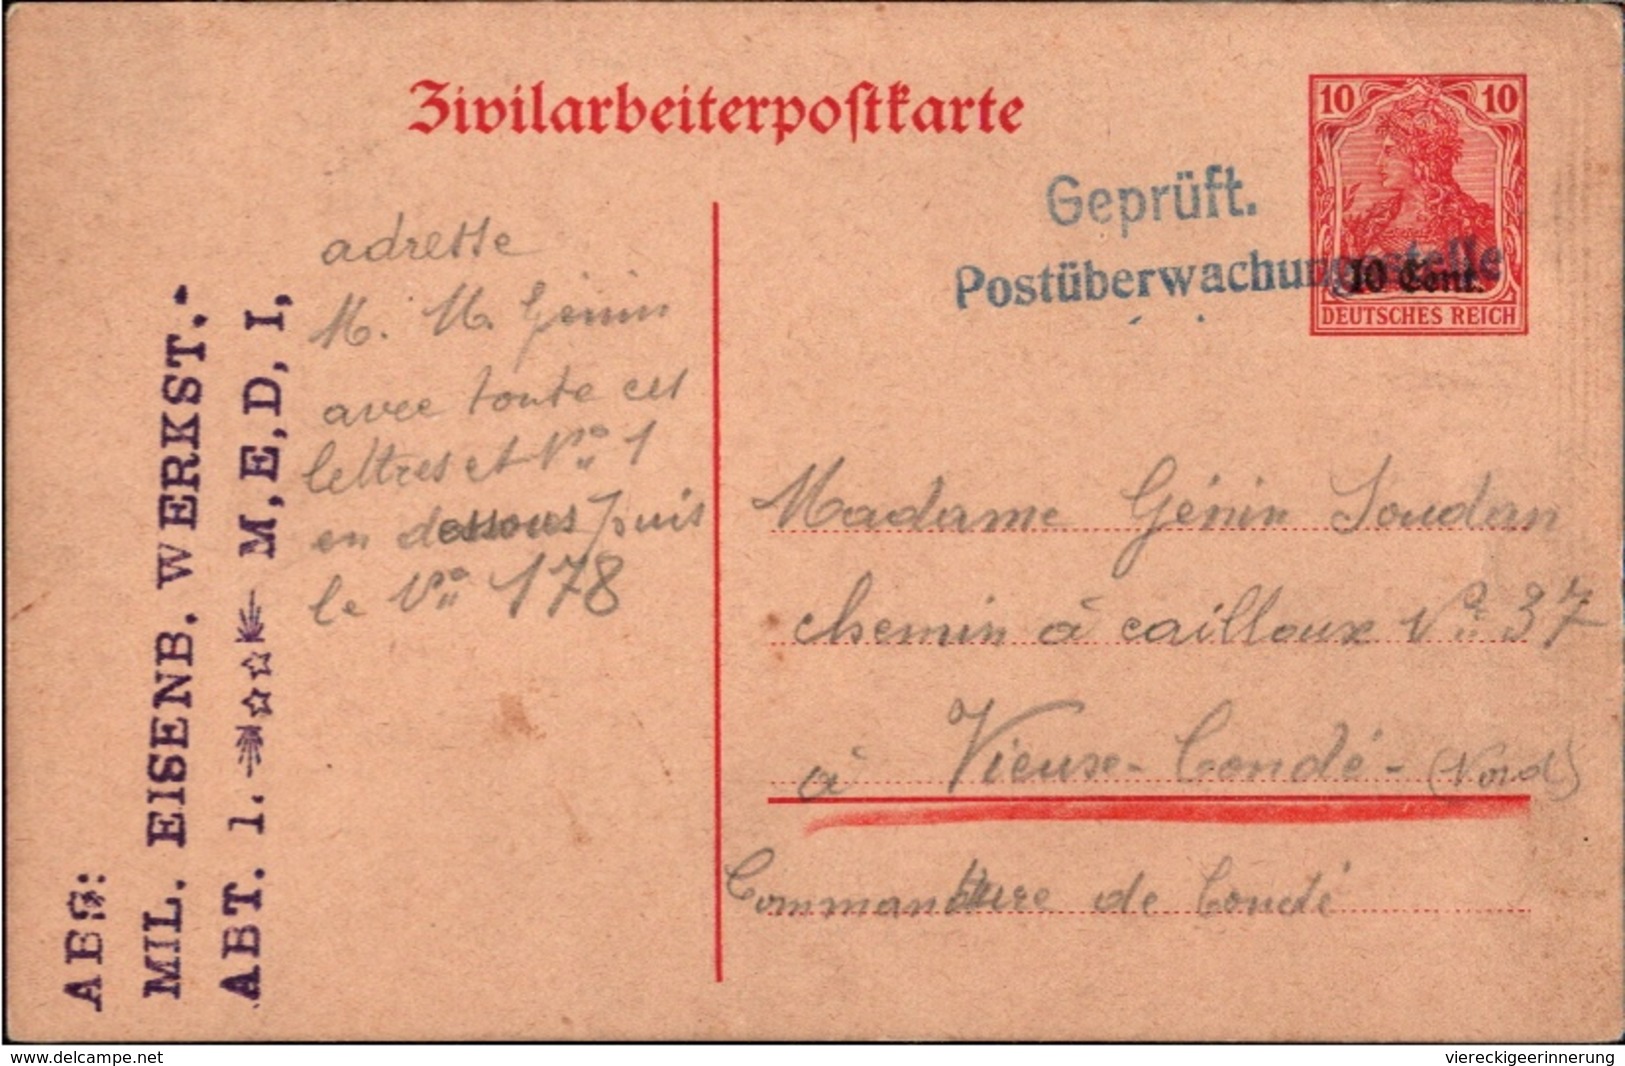 Zivilarbeiterpostkarte
10 10
10 Cent.
DEUTSCHES REICH
Geprüft.
Postüberwachungsstelle
ABS:
MIL. EISENB. WERKST.-
ABT. 1. M,E,D,I,
adresse
M. M. Génin
avec toute ces
lettres et No 1
en dessous puis
le No 178
Madame Génin Soudan
chemin à cailloux No 37
à Vieux-Condé-(Nord)
Commandture de Condé
delcampe.net
viereckigeerinnerung